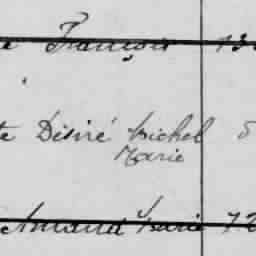 François 13
te Désiré Michel 5
Marie
Amand Marie 72